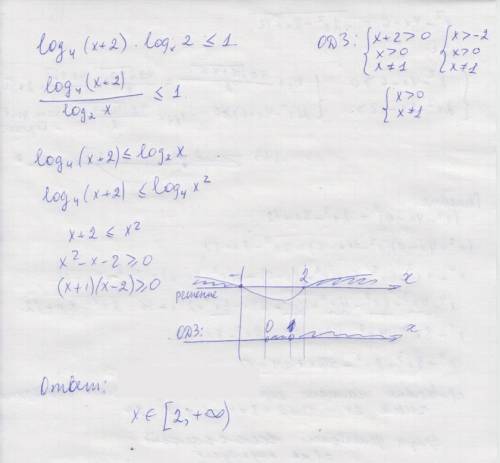 log₄(x+2) · logₓ2 ≤ 1
ОДЗ: { x+2>0 { x>-2
x>0 x>0
x≠1 x≠1
{ x>0
x≠1
log₄(x+2) / log₂x ≤ 1
log₄(x+2) ≤ log₂x
log₄(x+2) ≤ log₄x²
x+2 ≤ x²
x²-x-2 ≥ 0
(x+1)(x-2) ≥ 0
-1 2 x
решение
ОДЗ: 0 1 x
Ответ:
x ∈ [2; +∞)